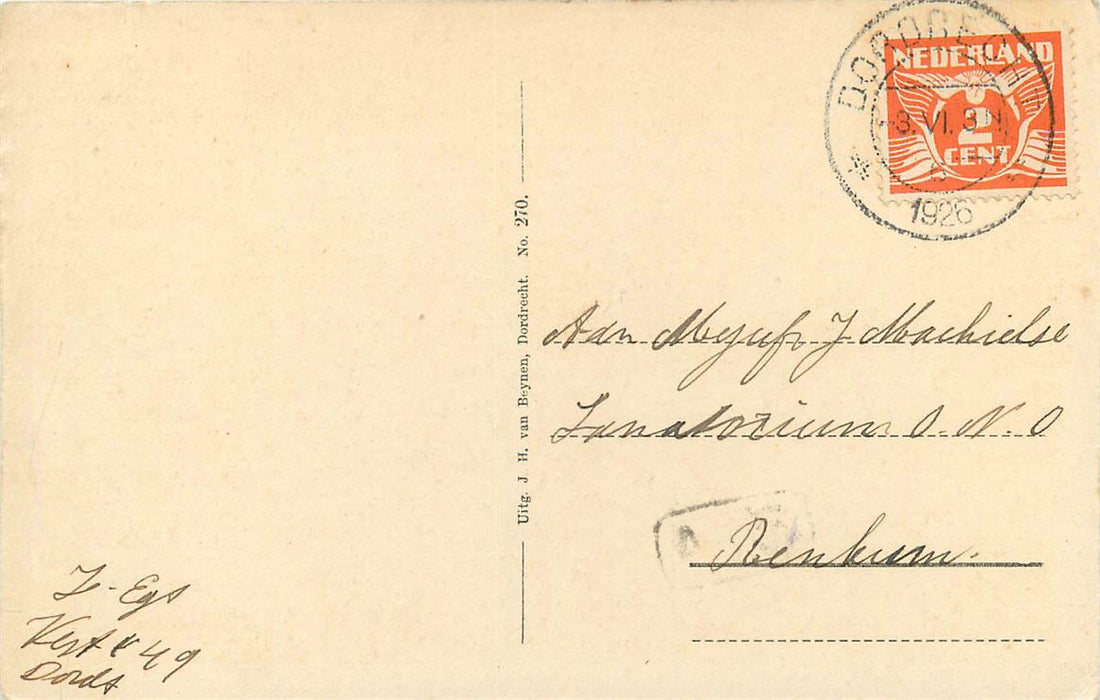 DORDRECHT
-3.VI.3N
1926
NEDERLAND
2
CENT
Uitg. J. H. van Beynen, Dordrecht. No. 270.
Aan Mejuf. J Machielse
Sanatorium O.N.O
Renkum.
Vest 49
Dordt